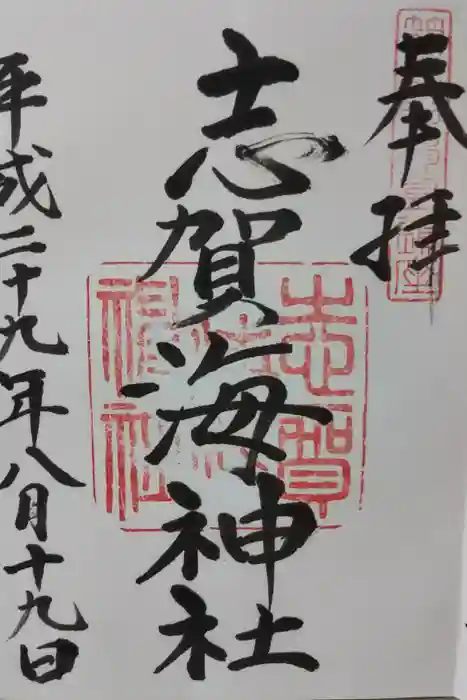 奉拝
志賀海神社
志賀海神社
平成二十九年八月十九日